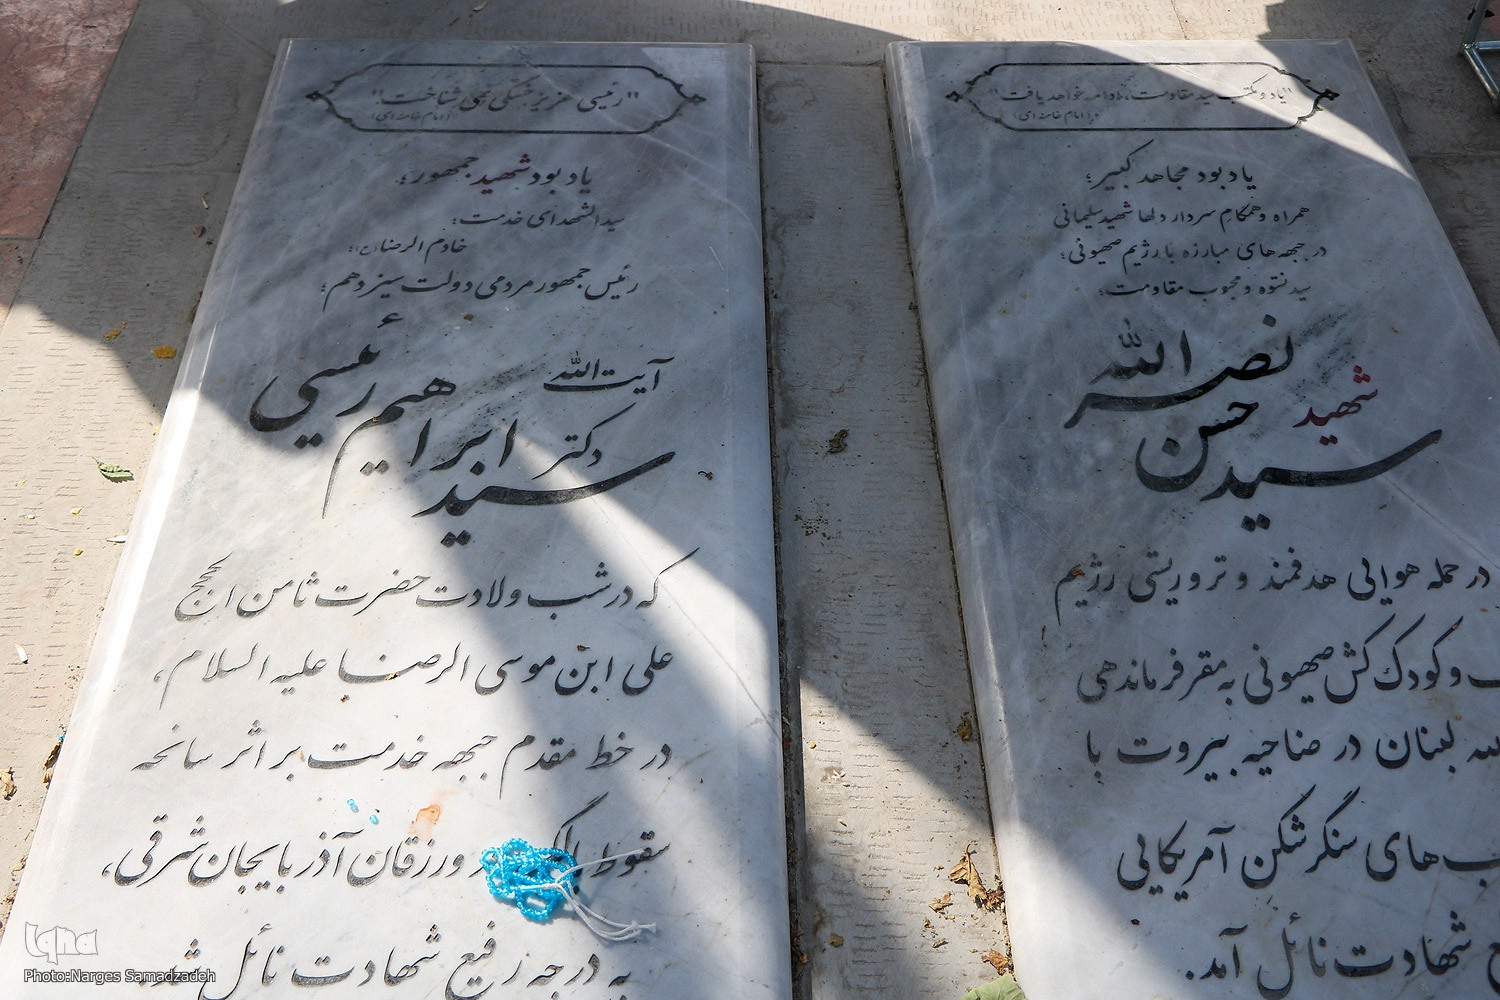 "رئیسی عزیز خستگی نمی‌شناخت"
(امام خامنه‌ای)
یادبود شهید جمهور؛
سیدالشهدای خدمت؛
خادم الرضا(ع)؛
رئیس جمهور مردمی دولت سیزدهم؛
آیت الله
دکتر
سید ابراهیم رئیسی
که در شب ولادت حضرت ثامن الحجج
علی ابن موسی الرضا علیه السلام،
در خط مقدم جبهه خدمت بر اثر سانحه
سقوط ورزقان آذربایجان شرقی،
به درجه رفیع شهادت نائل شد.
"یاد و مکتب سید مقاومت، ادامه خواهد یافت"
(امام خامنه‌ای)
یادبود مجاهد کبیر؛
همراه و همگام سردار دلها شهید سلیمانی
در جبهه‌های مبارزه با رژیم صهیونی؛
سید نستوه و محبوب مقاومت؛
شهید
سید حسن نصرالله
در حمله هوایی هدفمند و تروریستی رژیم
و کودک کش صهیونی به مقر فرماندهی
لبنان در ضاحیه بیروت با
های سنگر شکن آمریکایی
شهادت نائل آمد.
iqna
Photo:Narges Samadzadeh